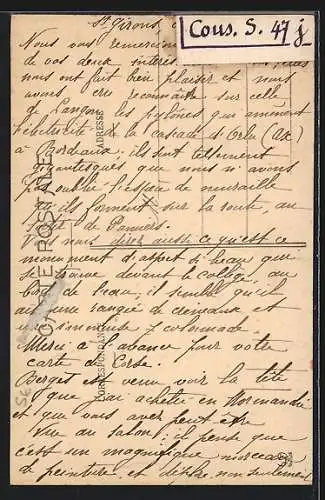 St Girons,
Cous. S. 47 j
Nous vous remercions
de vos deux
nous ont fait bien plaisir et nous
avons cru reconnaître sur celle
de les pylônes qui amènent
l'électricité de la cascade d'Orlu (Ax)
à Bordeaux: ils sont tellement
gigantesques que nous n'avons
pas oublié l'espèce de muraille
qu'ils forment sur la route, au
de Pamiers.
nous dire aussi ce qu'est ce
monument d'aspect si beau que
se trouve devant le collège, au
bord de l'eau, il semble qu'il
ait une rangée de créneaux et
une immense colonnade.
Merci à l'avance pour votre
carte de Corse.
Berges est venu voir la tête
que j'ai achetée en Normandie
et que vous avez peut être
vue au salon; il pense que
c'est un magnifique morceau
de peinture et non seulement
CARTE POSTALE
CORRESPONDANCE
ADRESSE